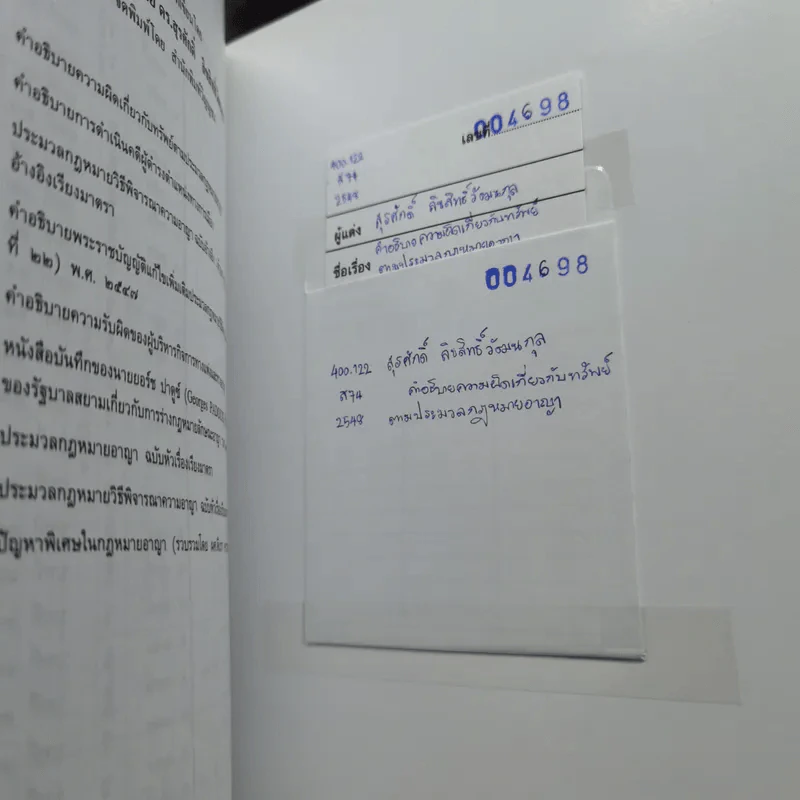 คำอธิบายความผิดเกี่ยวกับทรัพย์ตามประมวลกฎหมาย
คำอธิบายการดำเนินคดีผู้ดำรงตำแหน่งทางการเมือง
ประมวลกฎหมายวิธีพิจารณาความอาญา
อ้างอิงเรียงมาตรา
คำอธิบายพระราชบัญญัติแก้ไขเพิ่มเติมประมวลกฎหมาย
ที่ ๒๒) พ.ศ. ๒๕๔๗
คำอธิบายความรับผิดของผู้บริหารกิจการ
หนังสือบันทึกของนายยอร์ช ปาดูซ์ (Georges
ของรัฐบาลสยามเกี่ยวกับการร่างกฎหมายลักษณะอาญา
ประมวลกฎหมายอาญา ฉบับหัวเรื่องเรียงมาตรา
ประมวลกฎหมายวิธีพิจารณาความอาญา
ปัญหาพิเศษในกฎหมายอาญา (รวบรวมโดย
เลขที่ 004698
400.122
ส74
2548
ผู้แต่ง สุรศักดิ์ ลิขสิทธิ์วัฒนกุล
ชื่อเรื่อง คำอธิบายความผิดเกี่ยวกับทรัพย์
ตามประมวลกฎหมายอาญา
004698
400.122 สุรศักดิ์ ลิขสิทธิ์วัฒนกุล
ส74 คำอธิบายความผิดเกี่ยวกับทรัพย์
2548 ตามประมวลกฎหมายอาญา